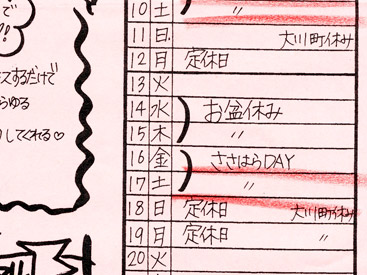 で
!!
スするだけで
らゆる
してくれる♡
10 土 〃
11 日 大川町休み
12 月 定休日
13 火
14 水 お盆休み
15 木 〃
16 金 ささはらDAY
17 土 〃
18 日 定休日 大川町休み
19 月 定休日 〃
20 火